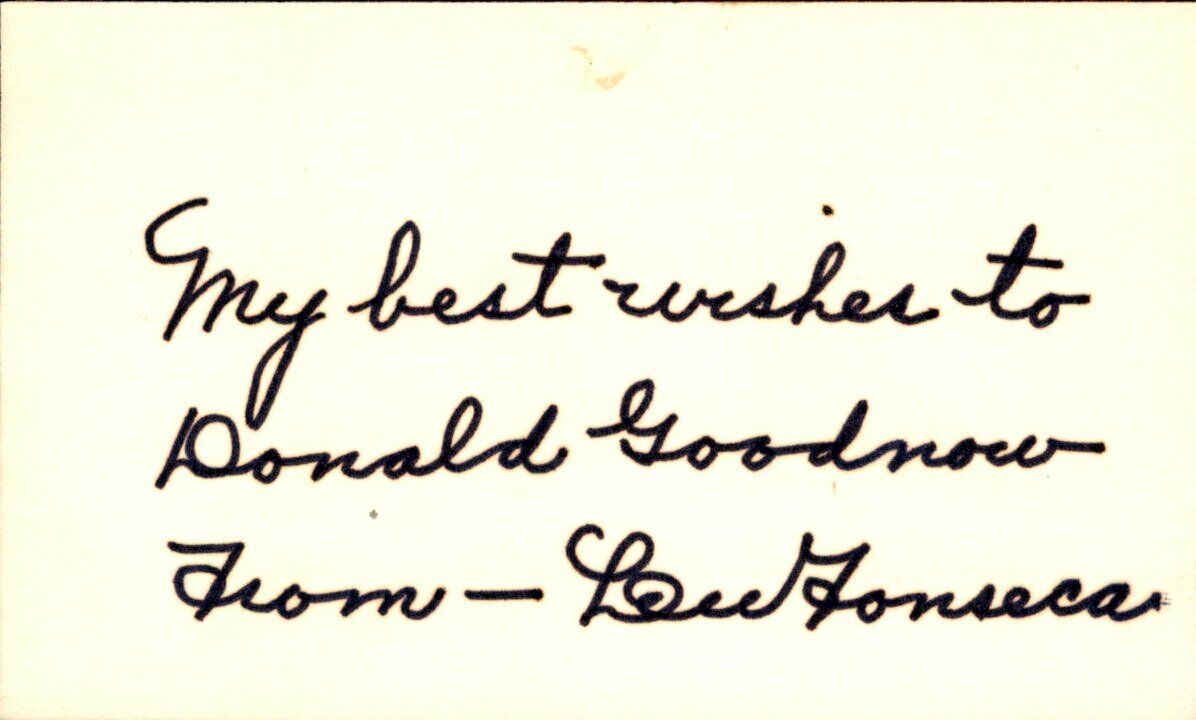 My best wishes to
Donald Goodnow
From — Lew Fonseca